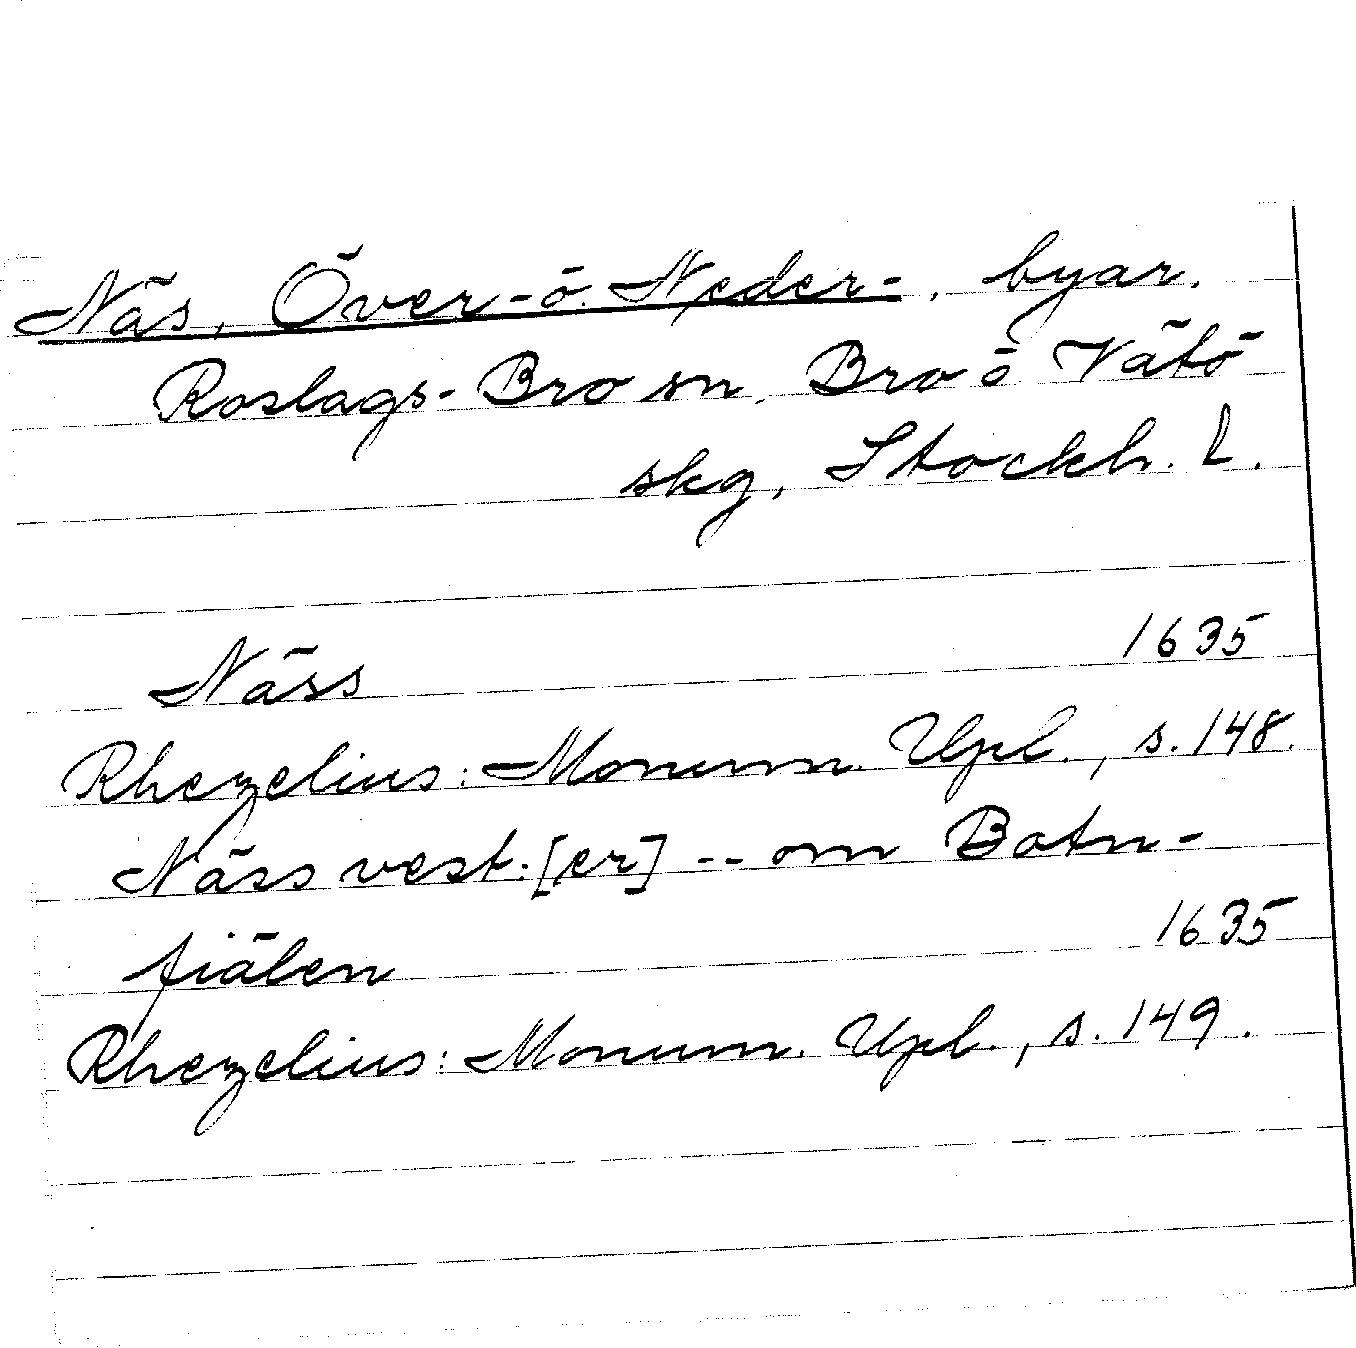 Näs, Över- o. Neder-, byar.
Roslags-Bro sn, Bro o Vätö
skg, Stockh. l.
Näss 1635
Rhezelius: Monum. Upl., s. 148.
Näss vest.[er] -- om Botn-
fiälen 1635
Rhezelius: Monum. Upl., s. 149.